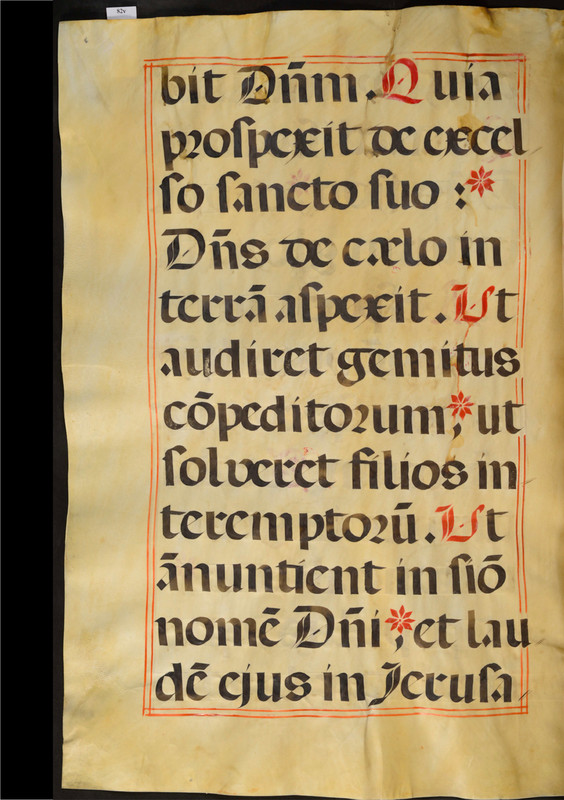 92v
bit Dn̄m. Quia
proſpexit de excel
ſo ſancto ſuo :*
Dn̄s de cælo in
terrā aſpexit. Ut
audiret gemitus
cōpeditorum,* ut
ſolveret filios in
teremptorū. Ut
ānuntient in ſiō
nomē Dn̄i,* et lau
dē ejus in Jeruſa